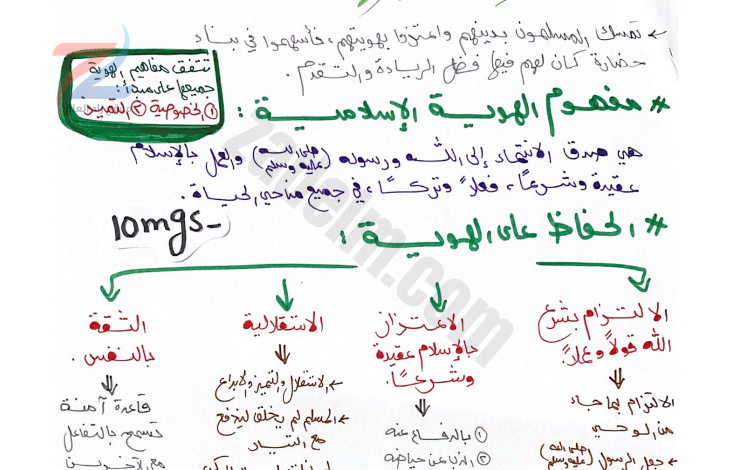 ← تمسك المسلمون بدينهم واعتزوا بهويتهم، فأسهموا في بناء
حضارة كان لهم فيها فضل الريادة والتقدم.
تتفق مفاهيم الهوية
جميعها على مبدأ:
① الخصوصية ② التميز
# مفهوم الهوية الإسلامية :
هي صدق الانتماء إلى الله ورسوله (صلى الله عليه وسلم) والعمل بالإسلام
عقيدة وشرعاً، فعلاً وتركاً، في جميع مناحي الحياة.
10mgs_
# الحفاظ على الهوية :
الالتزام بشرع
الله قولاً وعملاً.
الالتزام بما جاء
من الوحي
(صلى الله عليه وسلم) الرسول
الاعتزاز
بالإسلام عقيدة
وشرعاً.
① بالدفاع عنه
② الذب عن حياضه
الاستقلالية
← الاستقلال والتميز والإبداع
← المسلم لم يخلق ليندفع
مع التيار
الثقة
بالنفس.
قاعدة آمنة
تسمح بالتفاعل
مع الآخرين
zadelm.com